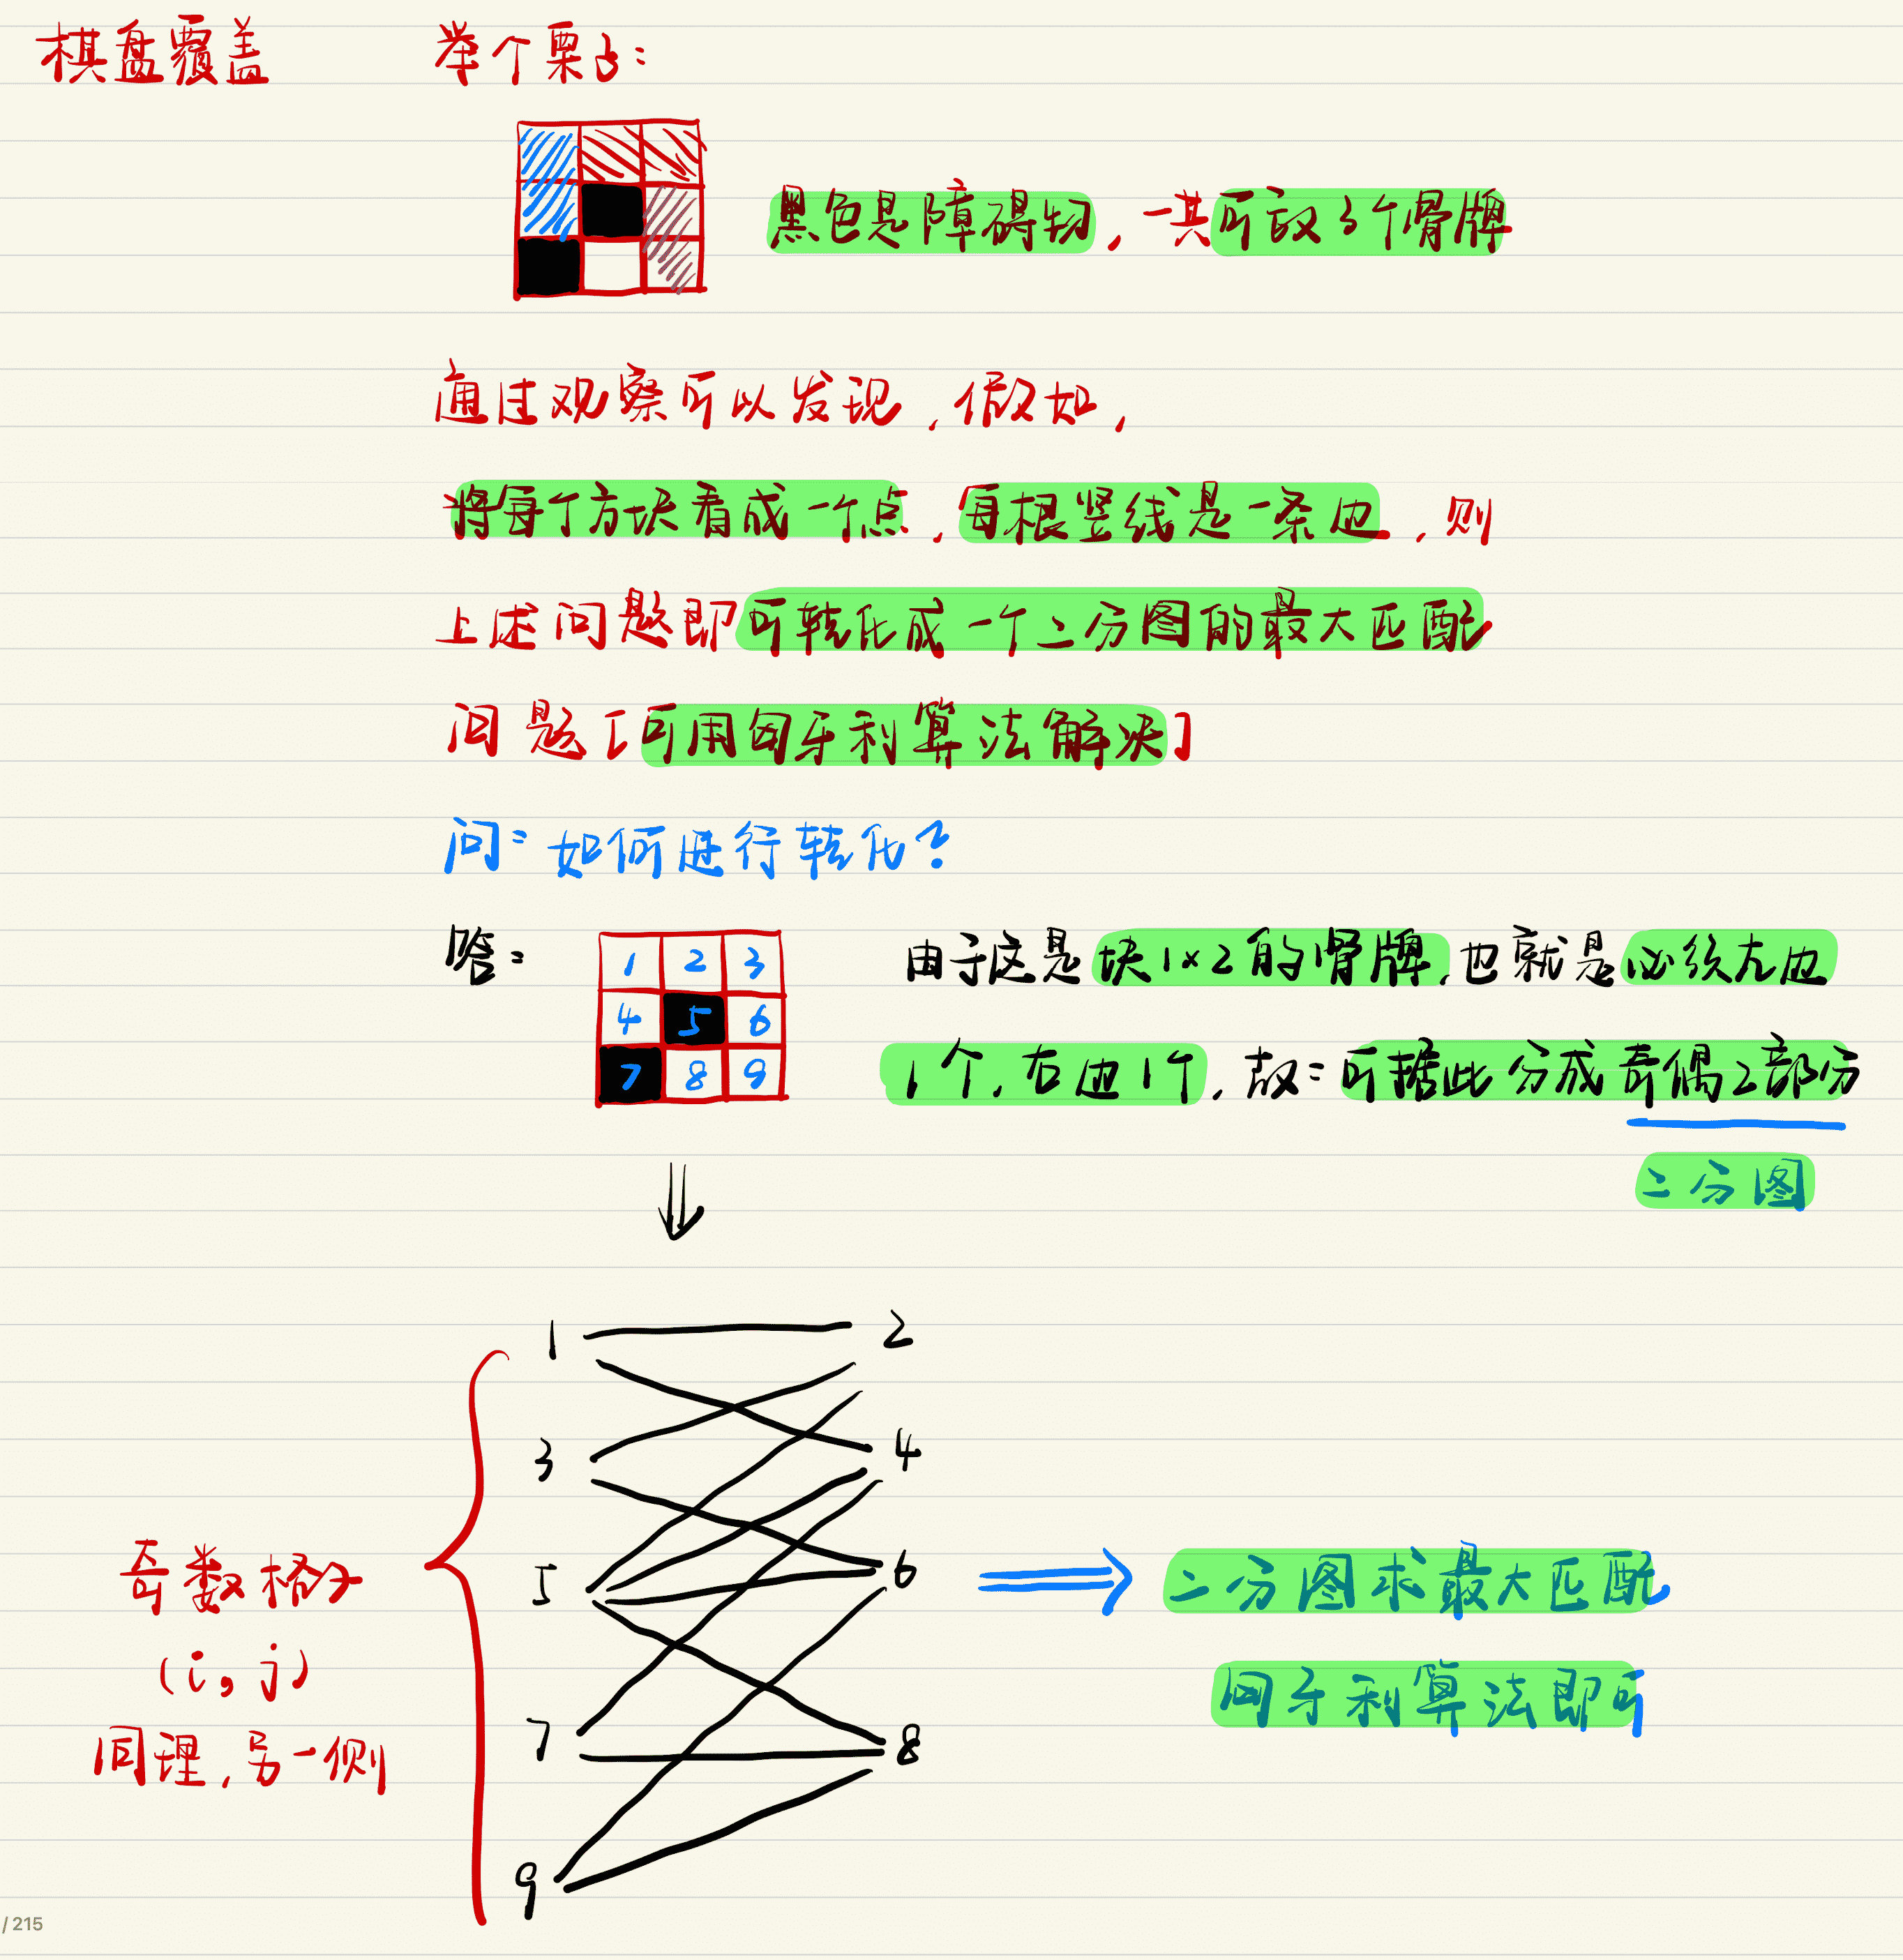 棋盘覆盖
举个栗子:
黑色是障碍物,一共可放3个骨牌
通过观察可以发现,假如,
将每个方块看成一个点,每根竖线是一条边,则
上述问题即可转化成一个二分图的最大匹配
问题[可用匈牙利算法解决]
问: 如何进行转化?
答:
1 2 3
4 5 6
7 8 9
由于这是块1×2的骨牌,也就是必须左边
1个,右边1个,故: 可据此分成奇偶2部分
二分图
1 2
3 4
5 6
7 8
9
奇数格子
(i,j)
同理,另一侧
二分图求最大匹配
匈牙利算法即可
/ 215